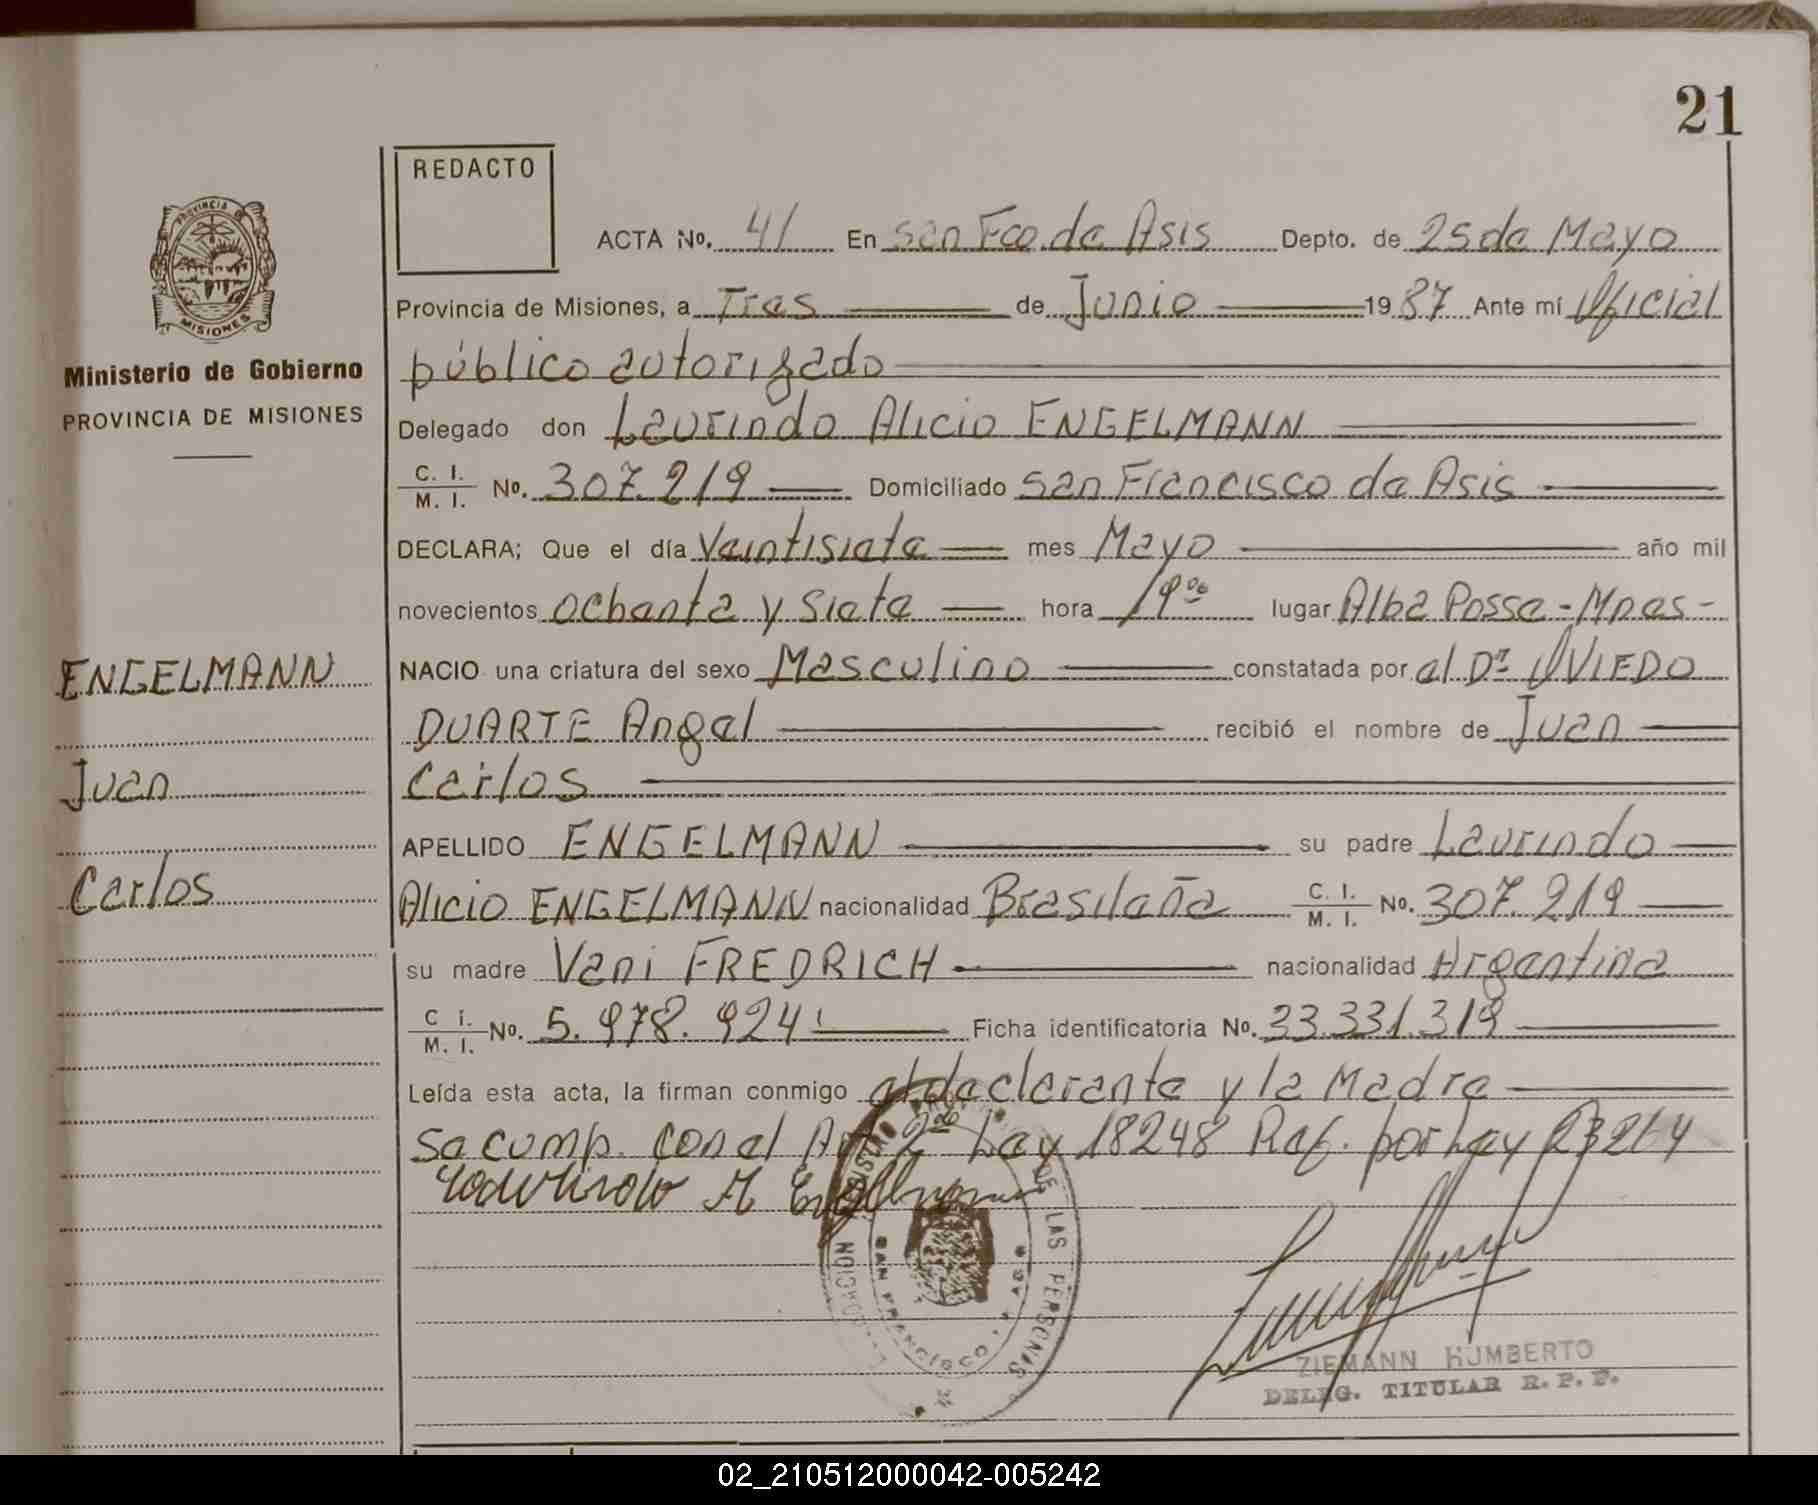 21
REDACTO
ACTA No. 41 En San Fco. de Asis Depto. de 25 de Mayo
Provincia de Misiones, a Tres de Junio 1987 Ante mí Oficial
público autorizado
Delegado don Laurindo Alicio ENGELMANN
C. I. / M. I. No. 307.219 Domiciliado San Francisco de Asis
DECLARA; Que el día Veintisiete mes Mayo año mil
novecientos ochenta y Siete hora 19 00 lugar Alba Posse - Mnes -
NACIO una criatura del sexo Masculino constatada por el Dr. OVIEDO
DUARTE Angel recibió el nombre de Juan
Carlos
APELLIDO ENGELMANN su padre Laurindo
Alicio ENGELMANN nacionalidad Brasileña C. I. / M. I. No. 307.219
su madre Vani FREDRICH nacionalidad Argentina
C. I. / M. I. No. 5.978.924 Ficha identificatoria No. 33.331.319
Leída esta acta, la firman conmigo el declarante y la Madre
Se cump. con el Art 2do Ley 18248 Ref. por Ley 23264
PROVINCIA DE
MISIONES
Ministerio de Gobierno
PROVINCIA DE MISIONES
ENGELMANN
Juan
Carlos
DE LAS PERSONAS
SAN FRANCISCO
ZIEMANN HUMBERTO
DELEG. TITULAR R. P. P.
02_210512000042-005242